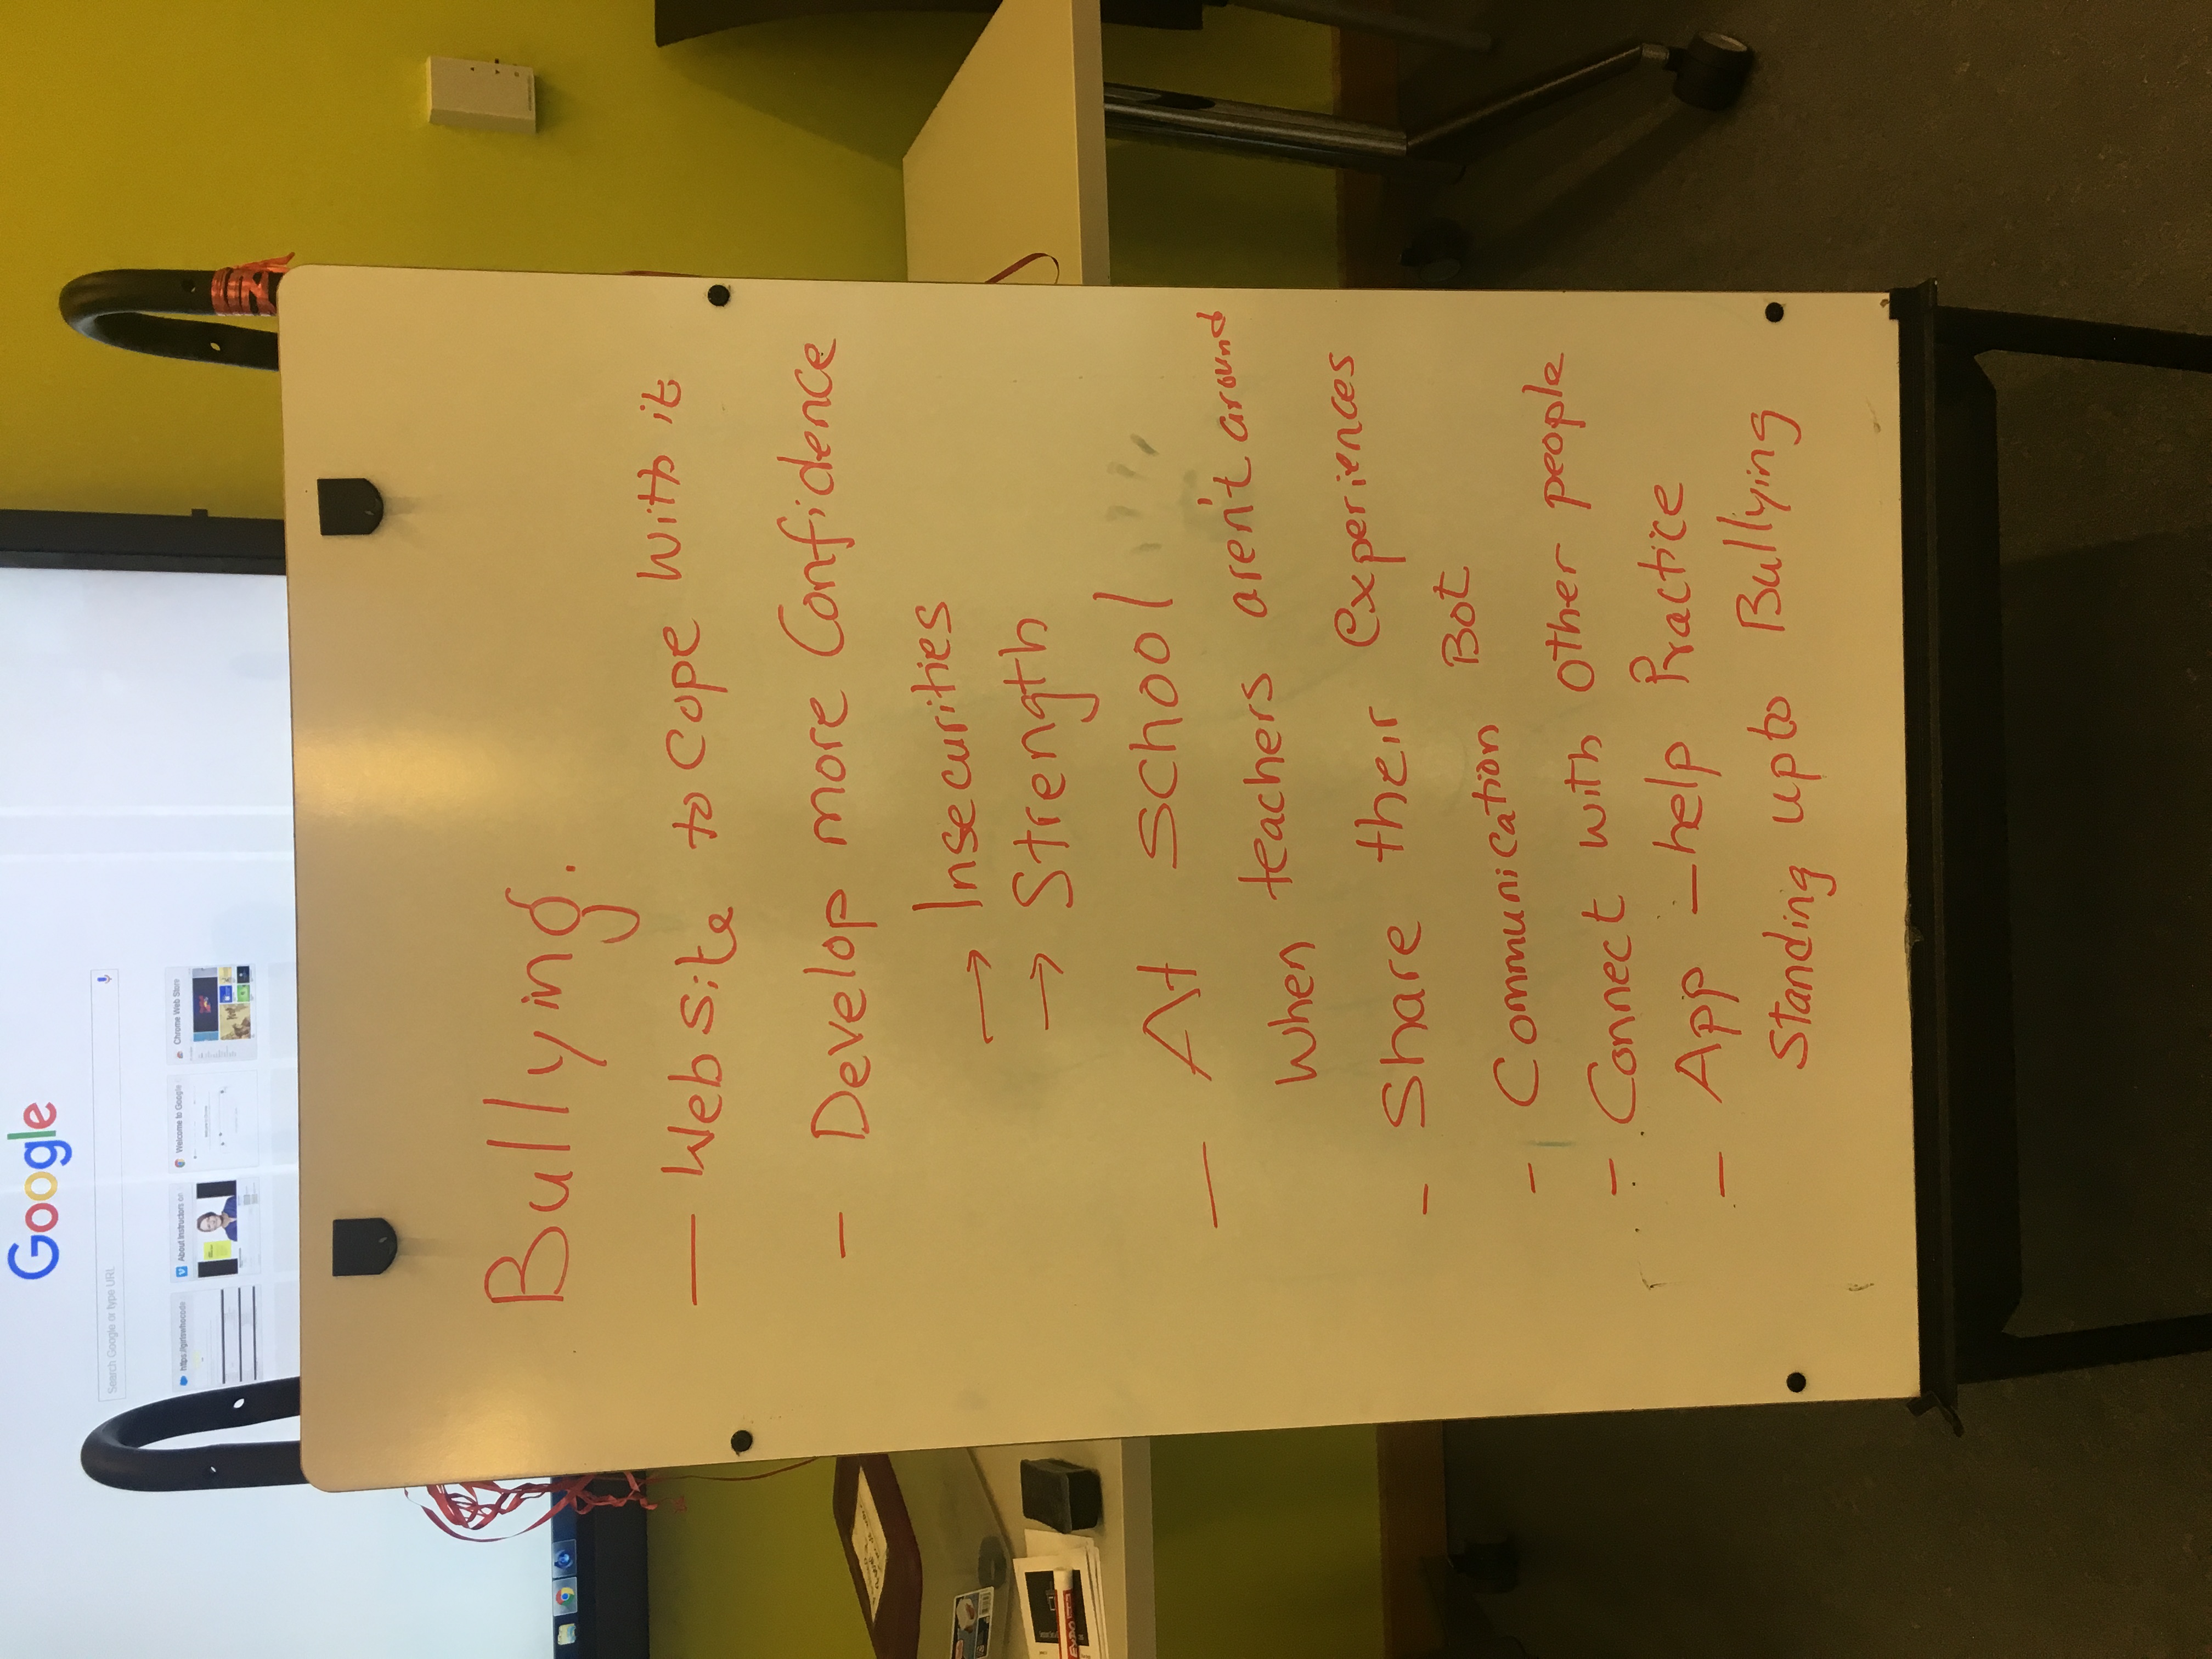 Google
Search Google or type URL
https://girlswhocode
About Instructors on
Welcome to Google
Chrome Web Store
Bullying.
— Website to Cope With it
- Develop more Confidence
→ Insecurities
→ Strength
— At school
When teachers aren't around
- Share their experiences
- Communication Bot
- Connect with other people
- App - help Practice
Standing up to Bullying
EXPO